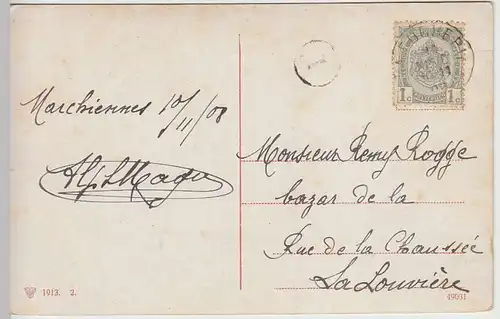 1
1c 1c
Marchiennes 10/11/08
Monsieur Remy Rogge
bazar de la
Rue de la Chaussée
La Louvière
1913. 2.
49031